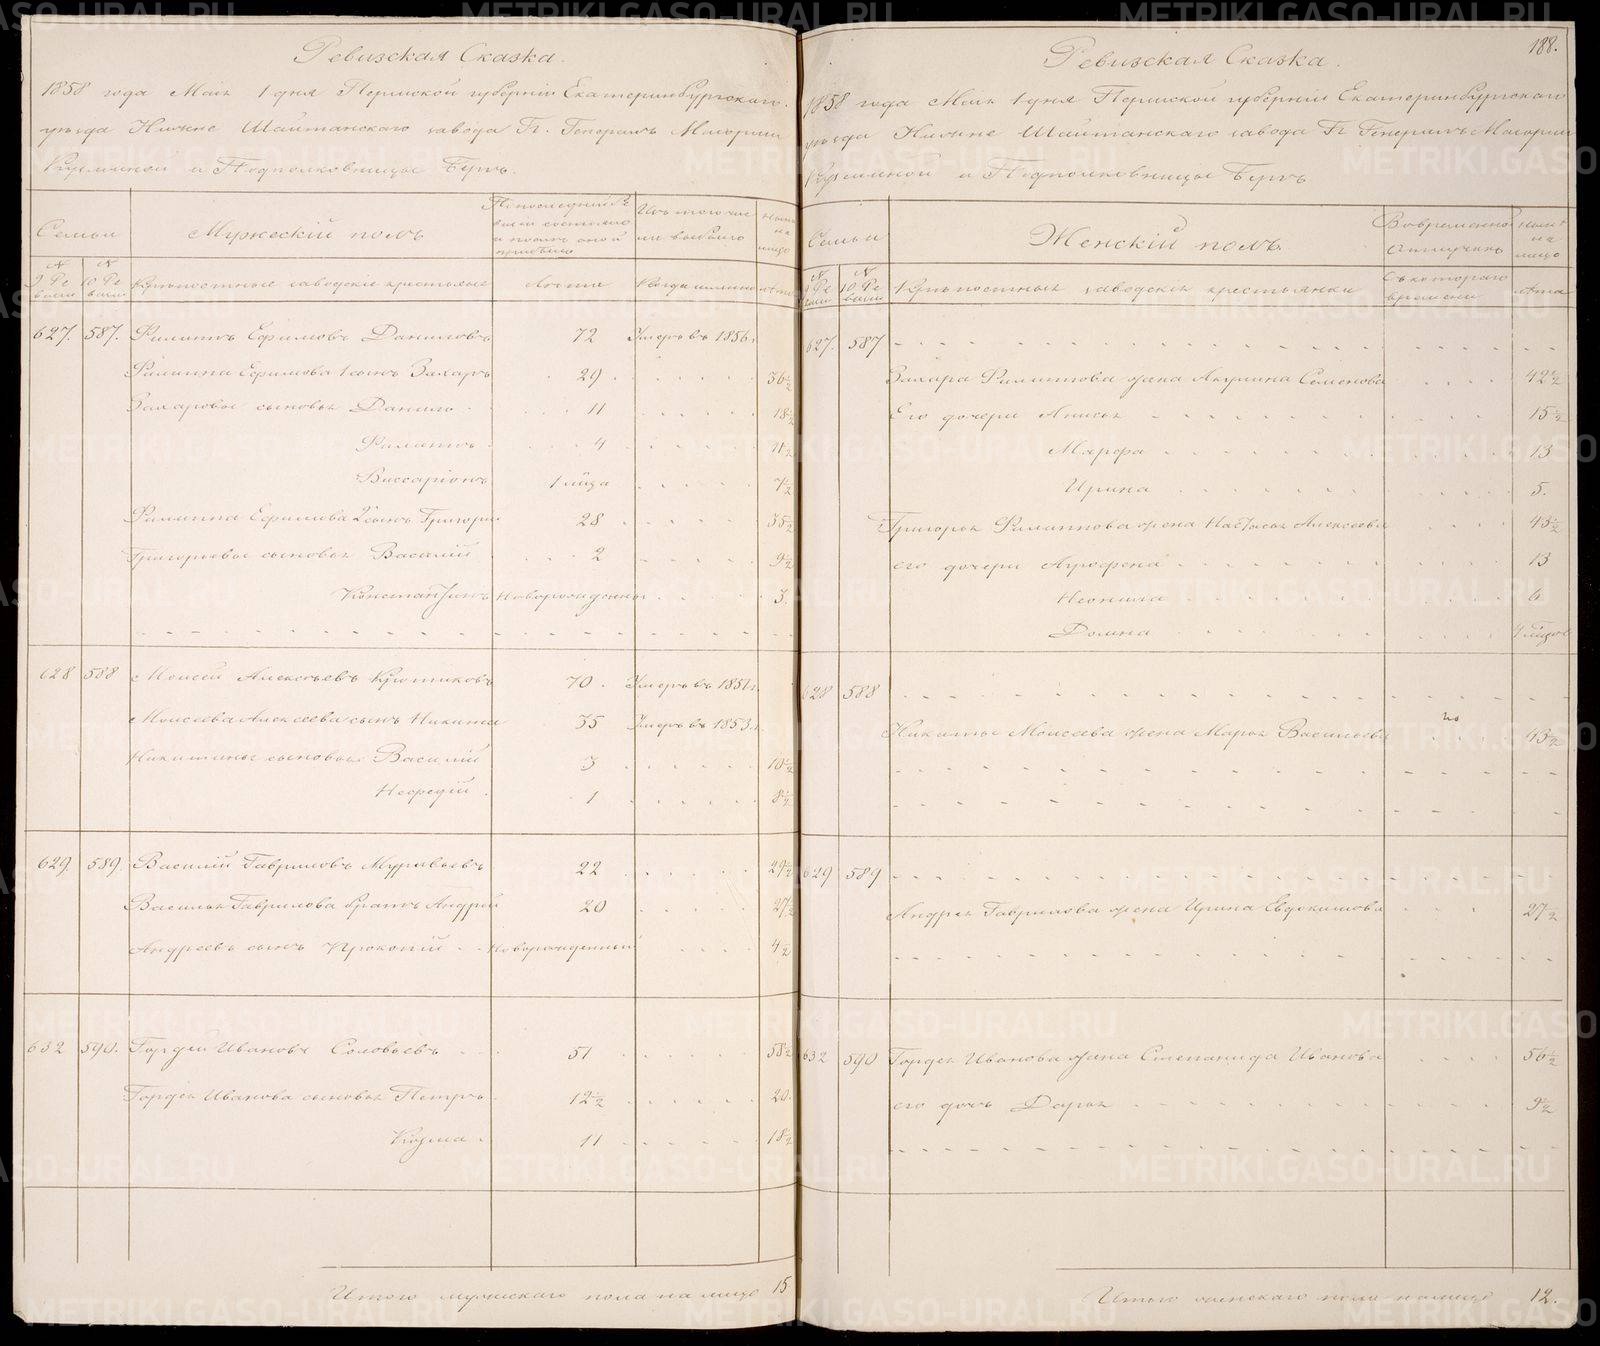 Ревизская Сказка.
1858 года Маія 1 дня Пермской губерніи Екатеринбургскаго
уѣзда Нижне Шайтанскаго завода Гг. Генералъ Маіорши
Кузминой и Подполковницы Бергъ.
Семьи
Мужескій полъ
По последней Ре
визіи состояло
и послѣ оной
прибыло
Изъ того чис
ла выбыло
Нынѣ
на
лицо
№ 9 Ре
визіи
№ 10 Ре
визіи
Крѣпостные заводскіе крестьяне
Лѣта
Когда именно
Лѣта
627. 587. Филипъ Ефимовъ Даниловъ 72 Умеръ въ 1856 г.
Филиппа Ефимова 1 сынъ Захаръ 29 36½
Захаровы сыновья Данило 11 18½
Филипъ 4 11½
Виссаріонъ 1 мѣс. 7½
Филиппа Ефимова 2 сынъ Григорій 28 35½
Григорьевы сыновья Василій 2 9½
Константинъ новорожденный 3.
628 588 Моисей Алексѣевъ Кротиковъ 70. Умеръ въ 1851 г.
Моисея Алексеева сынъ Никита 35 Умеръ въ 1853 г.
Никитины сыновья Василій 3 10½
Нефедій 1 8½
629. 589. Василій Гавриловъ Муравьевъ 22 29½
Василья Гаврилова братъ Андрей 20 27½
Андреевъ сынъ Прокопій новорожденный 4½
632 590. Гордей Ивановъ Соловьевъ 51 58½
Гордея Иванова сыновья Петръ 12½ 20.
Козма 11 18½
Итого мужскаго пола на лицо 15
188.
Ревизская Сказка.
1858 года Маія 1 дня Пермской губерніи Екатеринбургскаго
уѣзда Нижне Шайтанскаго завода Гг Генералъ Маіорши
Кузминой и Подполковницы Бергъ
Семьи
Женскій полъ.
Во временной
отлучкѣ
Нынѣ
на
лицо
№ 9 Ре
визіи
№ 10 Ре
визіи
Крѣпостныя заводскія крестьянки
Съ котораго
времени
Лѣта
627. 587
Захара Филиппова жена Акулина Семенова 42½
Его дочери Анисья 15½
Марфа 13
Ирина 5.
Григорья Филиппова жена Настасья Алексеева 43½
его дочери Агрофена 13
Неонила 6
Домна
628 588
Никиты Моисеева жена Марья Васильева 43½
629 589
Андрея Гаврилова жена Ирина Евдокимова 27½
632 590 Гордея Иванова жена Степанида Иванова 56½
его дочь Дарья 9½
Итого женскаго пола на лицо 12.
METRIKI.GASO-URAL.RU